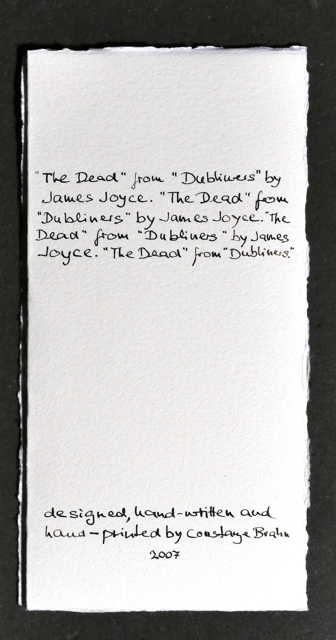 "The Dead" from "Dubliners" by
James Joyce. "The Dead" from
"Dubliners" by James Joyce. "The
Dead" from "Dubliners" by James
Joyce. "The Dead" from "Dubliners."
designed, hand-written and
hand-printed by Brahn
2007